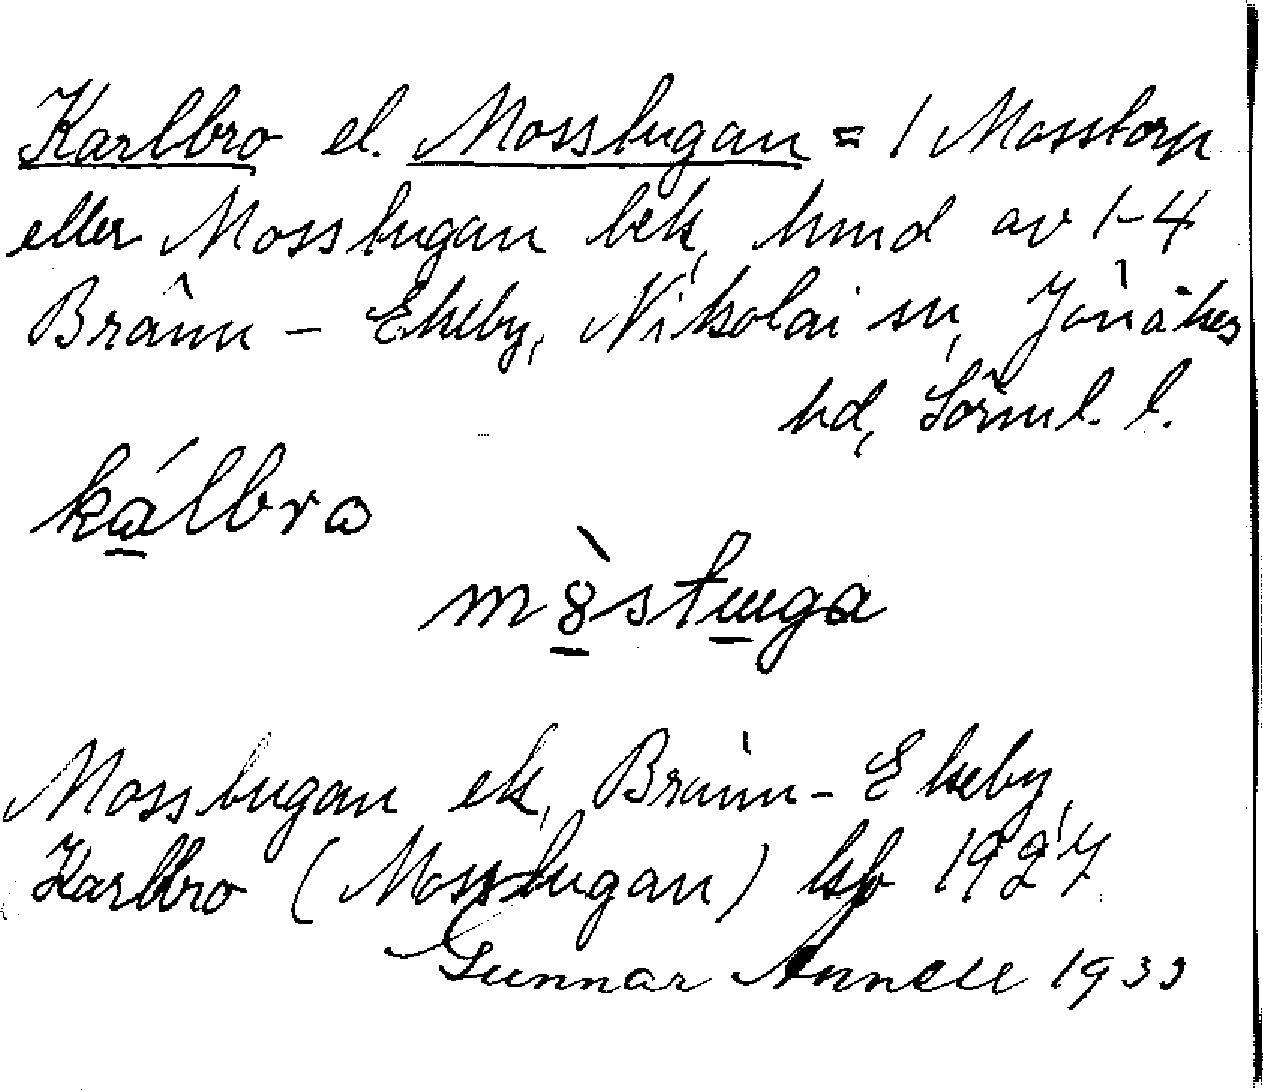 Karlbro el. Mosstugan = 1 Mosstorp
eller Mosstugan bek, hmd av 1-4
Bränn - Ekeby, Nikolai sn, Jönåkers
hd, Sörml. l.
kálbro
mòstuga
Mosstugan ek, Bränn - Ekeby,
Karlbro (Mosstugan) ksb 1927
Gunnar Annell 1933